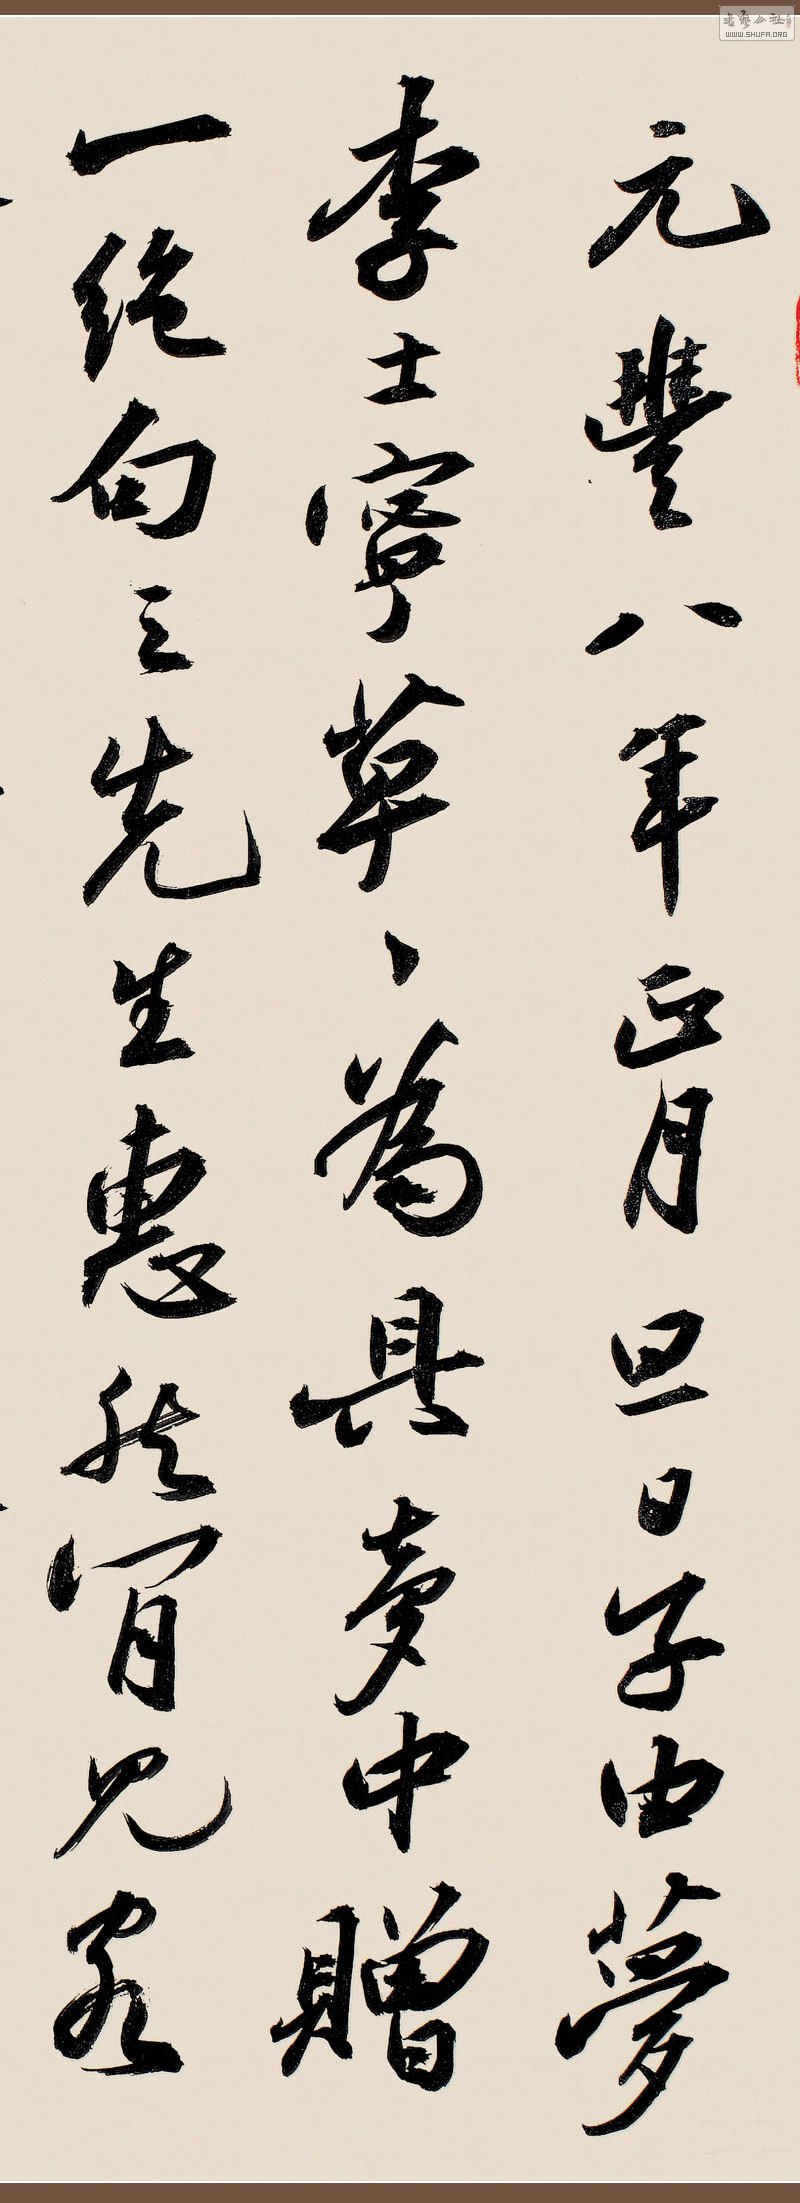 元豐八年正月旦日子由夢
李士寧草〻為具夢中贈
一絕句云先生惠然肯見客
書藝公社
WWW.SHUFA.ORG